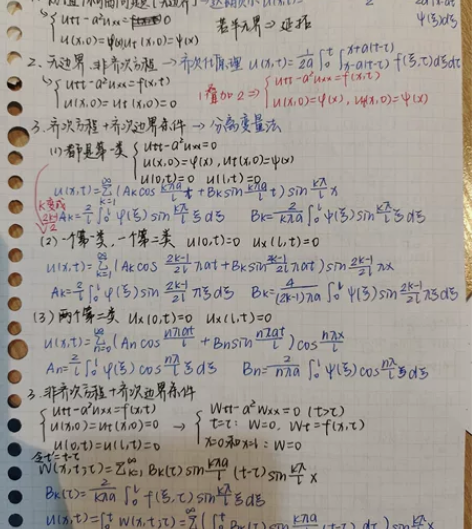 utt-a²uxx=0 若半无界⇒延拓
u(x,0)=φ(x) ut(x,0)=ψ(x)
2. 无边界、非齐次方程 → 齐次化原理 u(x,t)=1/2a ∫₀ᵗ∫_{x-a(t-τ)}^{x+a(t-τ)} f(ξ,τ)dξdτ
{utt-a²uxx=f(x,t)
u(x,0)=ut(x,0)=0
1叠加2⇒{utt-a²uxx=f(x,t)
u(x,0)=φ(x), ut(x,0)=ψ(x)
3. 齐次方程+齐次边界条件 → 分离变量法
(1) 都是第一类 {utt-a²uxx=0
u(x,0)=φ(x), ut(x,0)=ψ(x)
u(0,t)=0 u(l,t)=0
u(x,t)=Σ_{k=1}^∞ (Ak cos kπa/l t + Bk sin kπa/l t) sin kπ/l x
k变成 2k-1/2
Ak=2/l ∫₀ˡ φ(ξ) sin kπ/l ξdξ Bk=2/kπa ∫₀ˡ ψ(ξ) sin kπ/l ξdξ
(2) 一个第一类,一个第二类 u(0,t)=0 ux(l,t)=0
u(x,t)=Σ_{k=1}^∞ (Ak cos 2k-1/2l πat + Bk sin 2k-1/2l πat) sin 2k-1/2l πx
Ak=2/l ∫₀ˡ φ(ξ) sin 2k-1/2l πξdξ Bk=4/(2k-1)πa ∫₀ˡ ψ(ξ) sin 2k-1/2l πξdξ
(3) 两个第二类 ux(0,t)=0 ux(l,t)=0
u(x,t)=Σ_{n=0}^∞ (An cos nπat/l + Bn sin nπat/l) cos nπx/l
An=2/l ∫₀ˡ φ(ξ) cos nπ/l ξdξ Bn=2/nπa ∫₀ˡ ψ(ξ) cos nπ/l ξdξ
3. 非齐次方程+齐次边界条件
{utt-a²uxx=f(x,t) {Wtt-a²Wxx=0 (t>τ)
u(x,0)=ut(x,0)=0 → t=τ: W=0, Wt=f(x,τ)
u(0,t)=u(l,t)=0 x=0和x=l: W=0
令t'=t-τ
W(x,t;τ)=Σ_{k=1}^∞ Bk(τ) sin kπa/l (t-τ) sin kπ/l x
Bk(τ)=2/kπa ∫₀ˡ f(ξ,τ) sin kπ/l ξdξ
u(x,t)=∫₀ᵗ W(x,t;τ)dτ